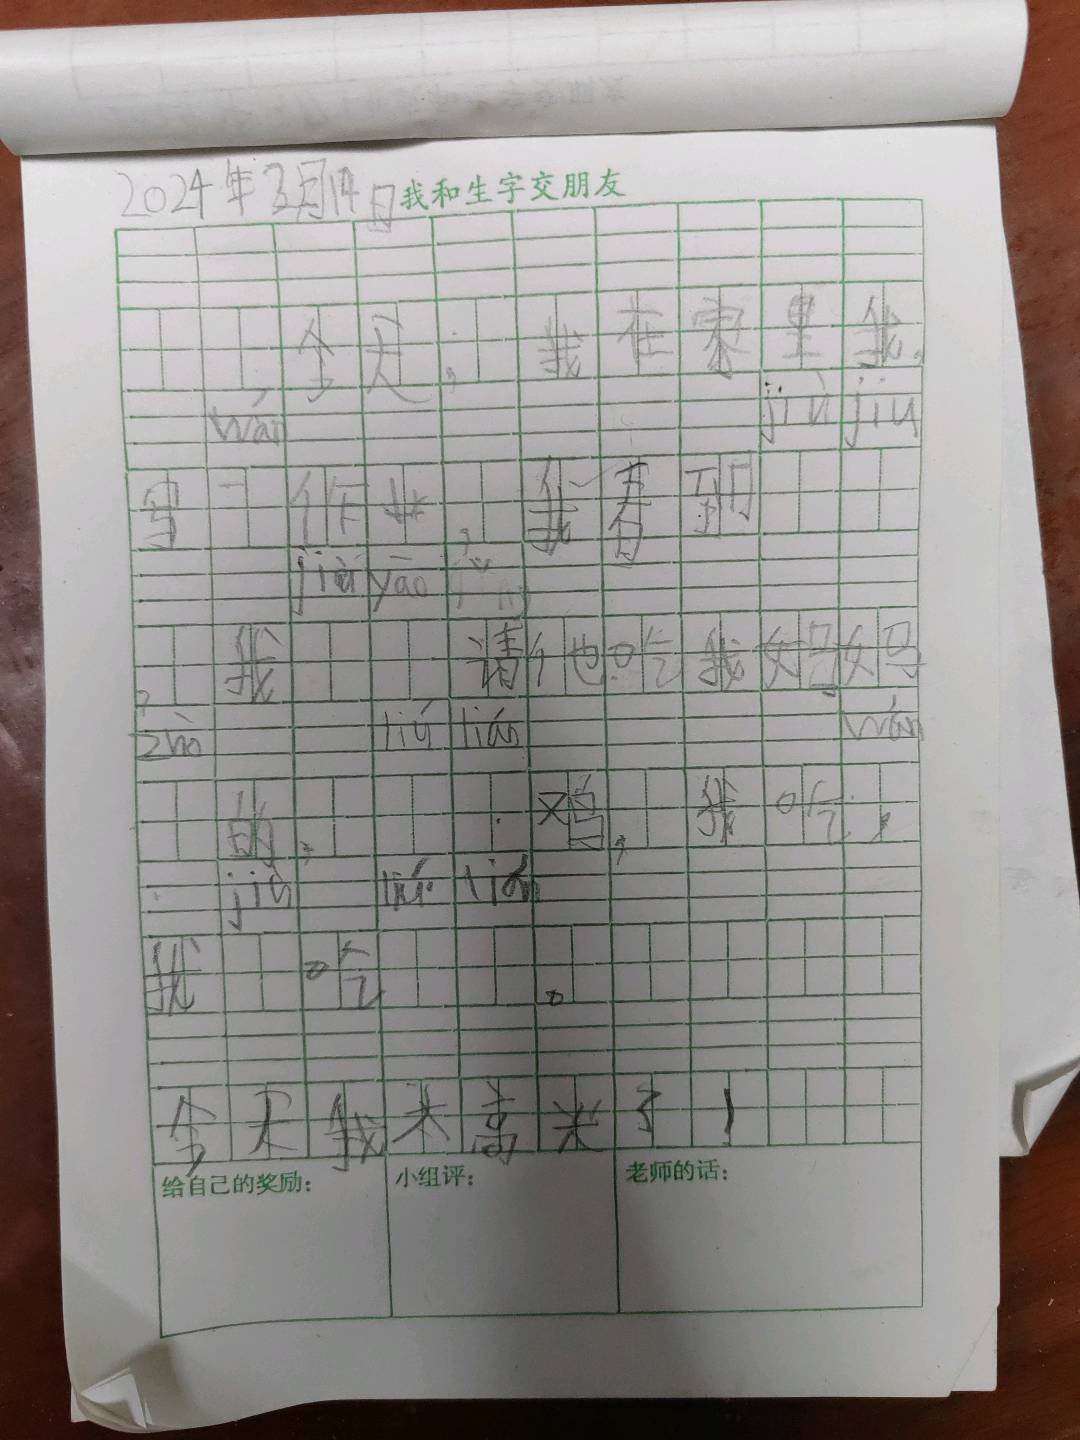 2024年3月14日我和生字交朋友
今天,我在家里我,
wán jiù jiu
写作业,我看到
jiù yāo
,我请他吃我妈妈
zuò liú lián wán
的,鸡,我吃,
jiù liú lián
我吃。
今天我太高兴了!
给自己的奖励: 小组评: 老师的话: